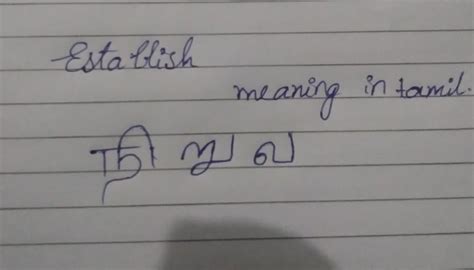 Establish
meaning in tamil.
நிறுவ